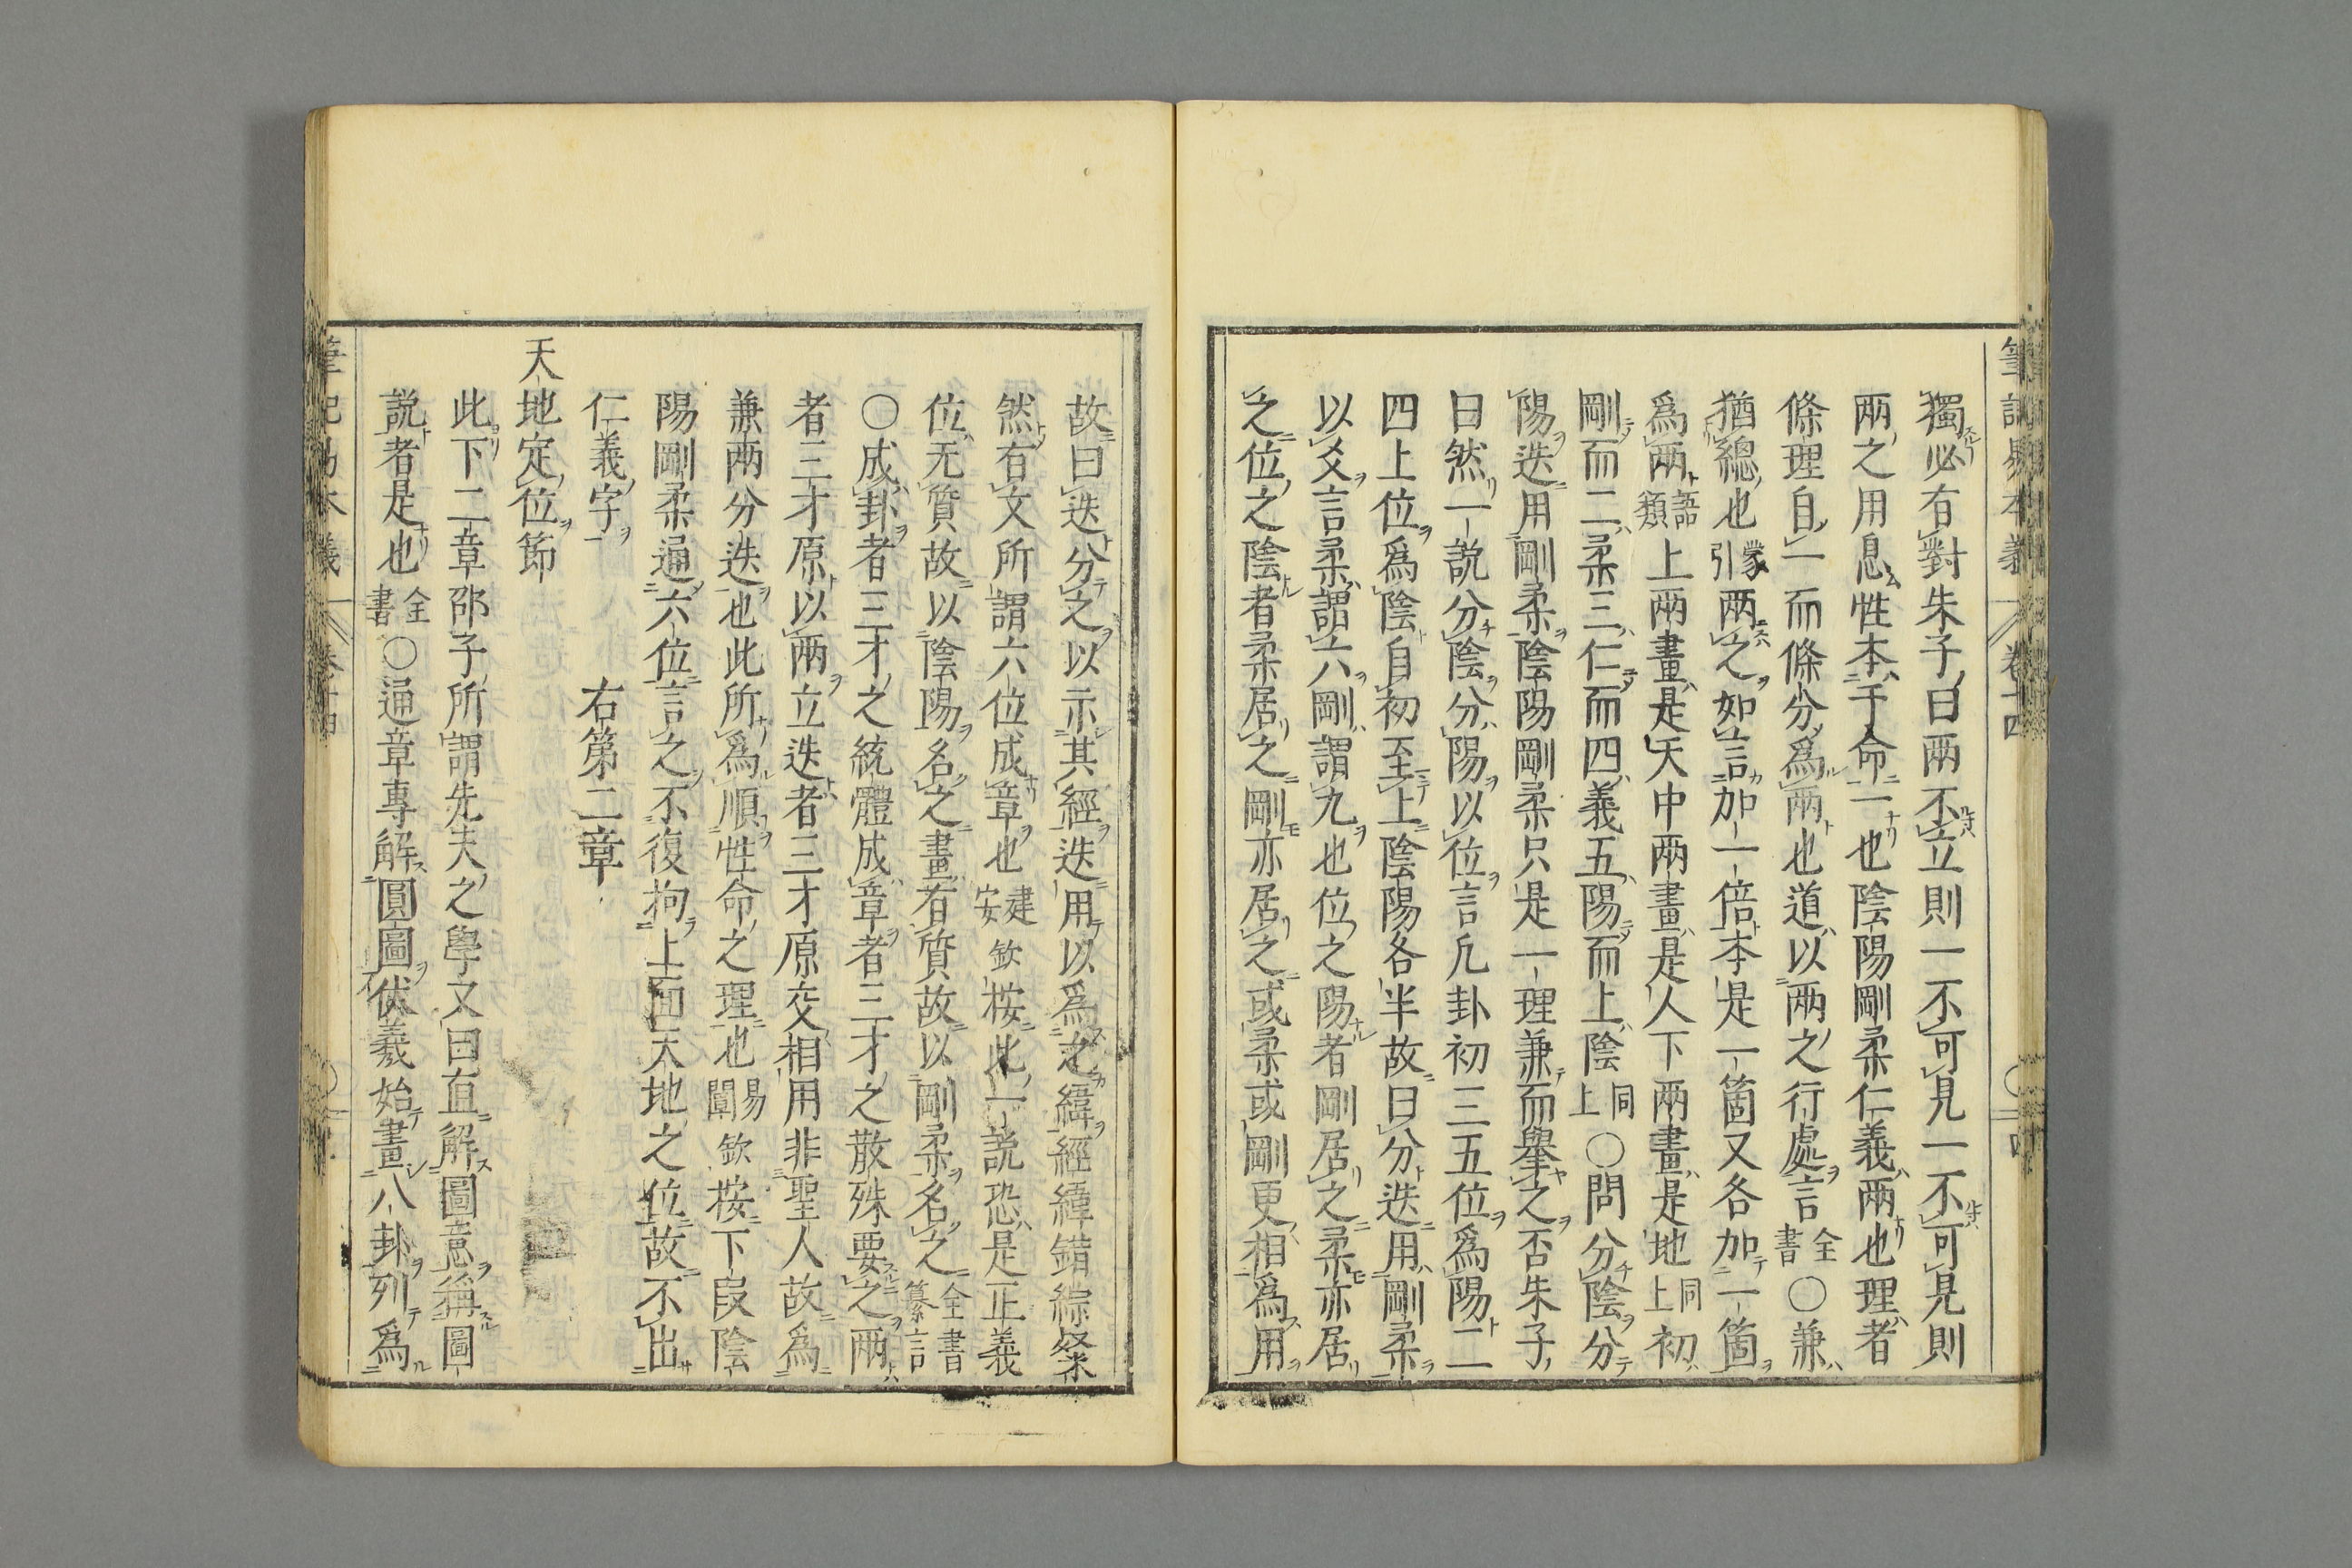 筆記易本義 卷十四 四
獨必有對朱子曰兩不立則一不可見一不可見則
兩之用息性本于命一也陰陽剛柔仁義兩也理者
條理自一而條分爲兩也道以兩之行處言全書〇兼
猶總也蒙引兩之如言加一倍本是一箇又各加一箇
爲兩語類上兩畫是天中兩畫是人下兩畫是地同上初
剛而二柔三仁而四義五陽而上陰同上〇問分陰分
陽迭用剛柔陰陽剛柔只是一理兼而舉之否朱子
曰然一說分陰分陽以位言凡卦初三五位爲陽二
四上位爲陰自初至上陰陽各半故曰分迭用剛柔
以爻言柔謂六剛謂九也位之陽者剛居之柔亦居
之位之陰者柔居之剛亦居之或柔或剛更相爲用
故曰迭分之以示其經迭用以爲之緯經緯錯綜粲
然有文所謂六位成章也建安欽按此一說恐是正義
位无質故以陰陽名之畫有質故以剛柔名之全書纂言
〇成卦者三才之統體成章者三才之散殊要之兩
者三才原以兩立迭者三才原交相用非聖人故爲
兼兩分迭也此所爲順性命之理也易闡欽按下段陰
陽剛柔通六位言之不復拘上面天地之位故不出
仁義字
右第二章
天地定位節
此下二章邵子所謂先天之學又曰直解圖意稱圖
說者是也全書〇通章專解圓圖伏羲始畫八卦列爲
筆記易本義 卷十四